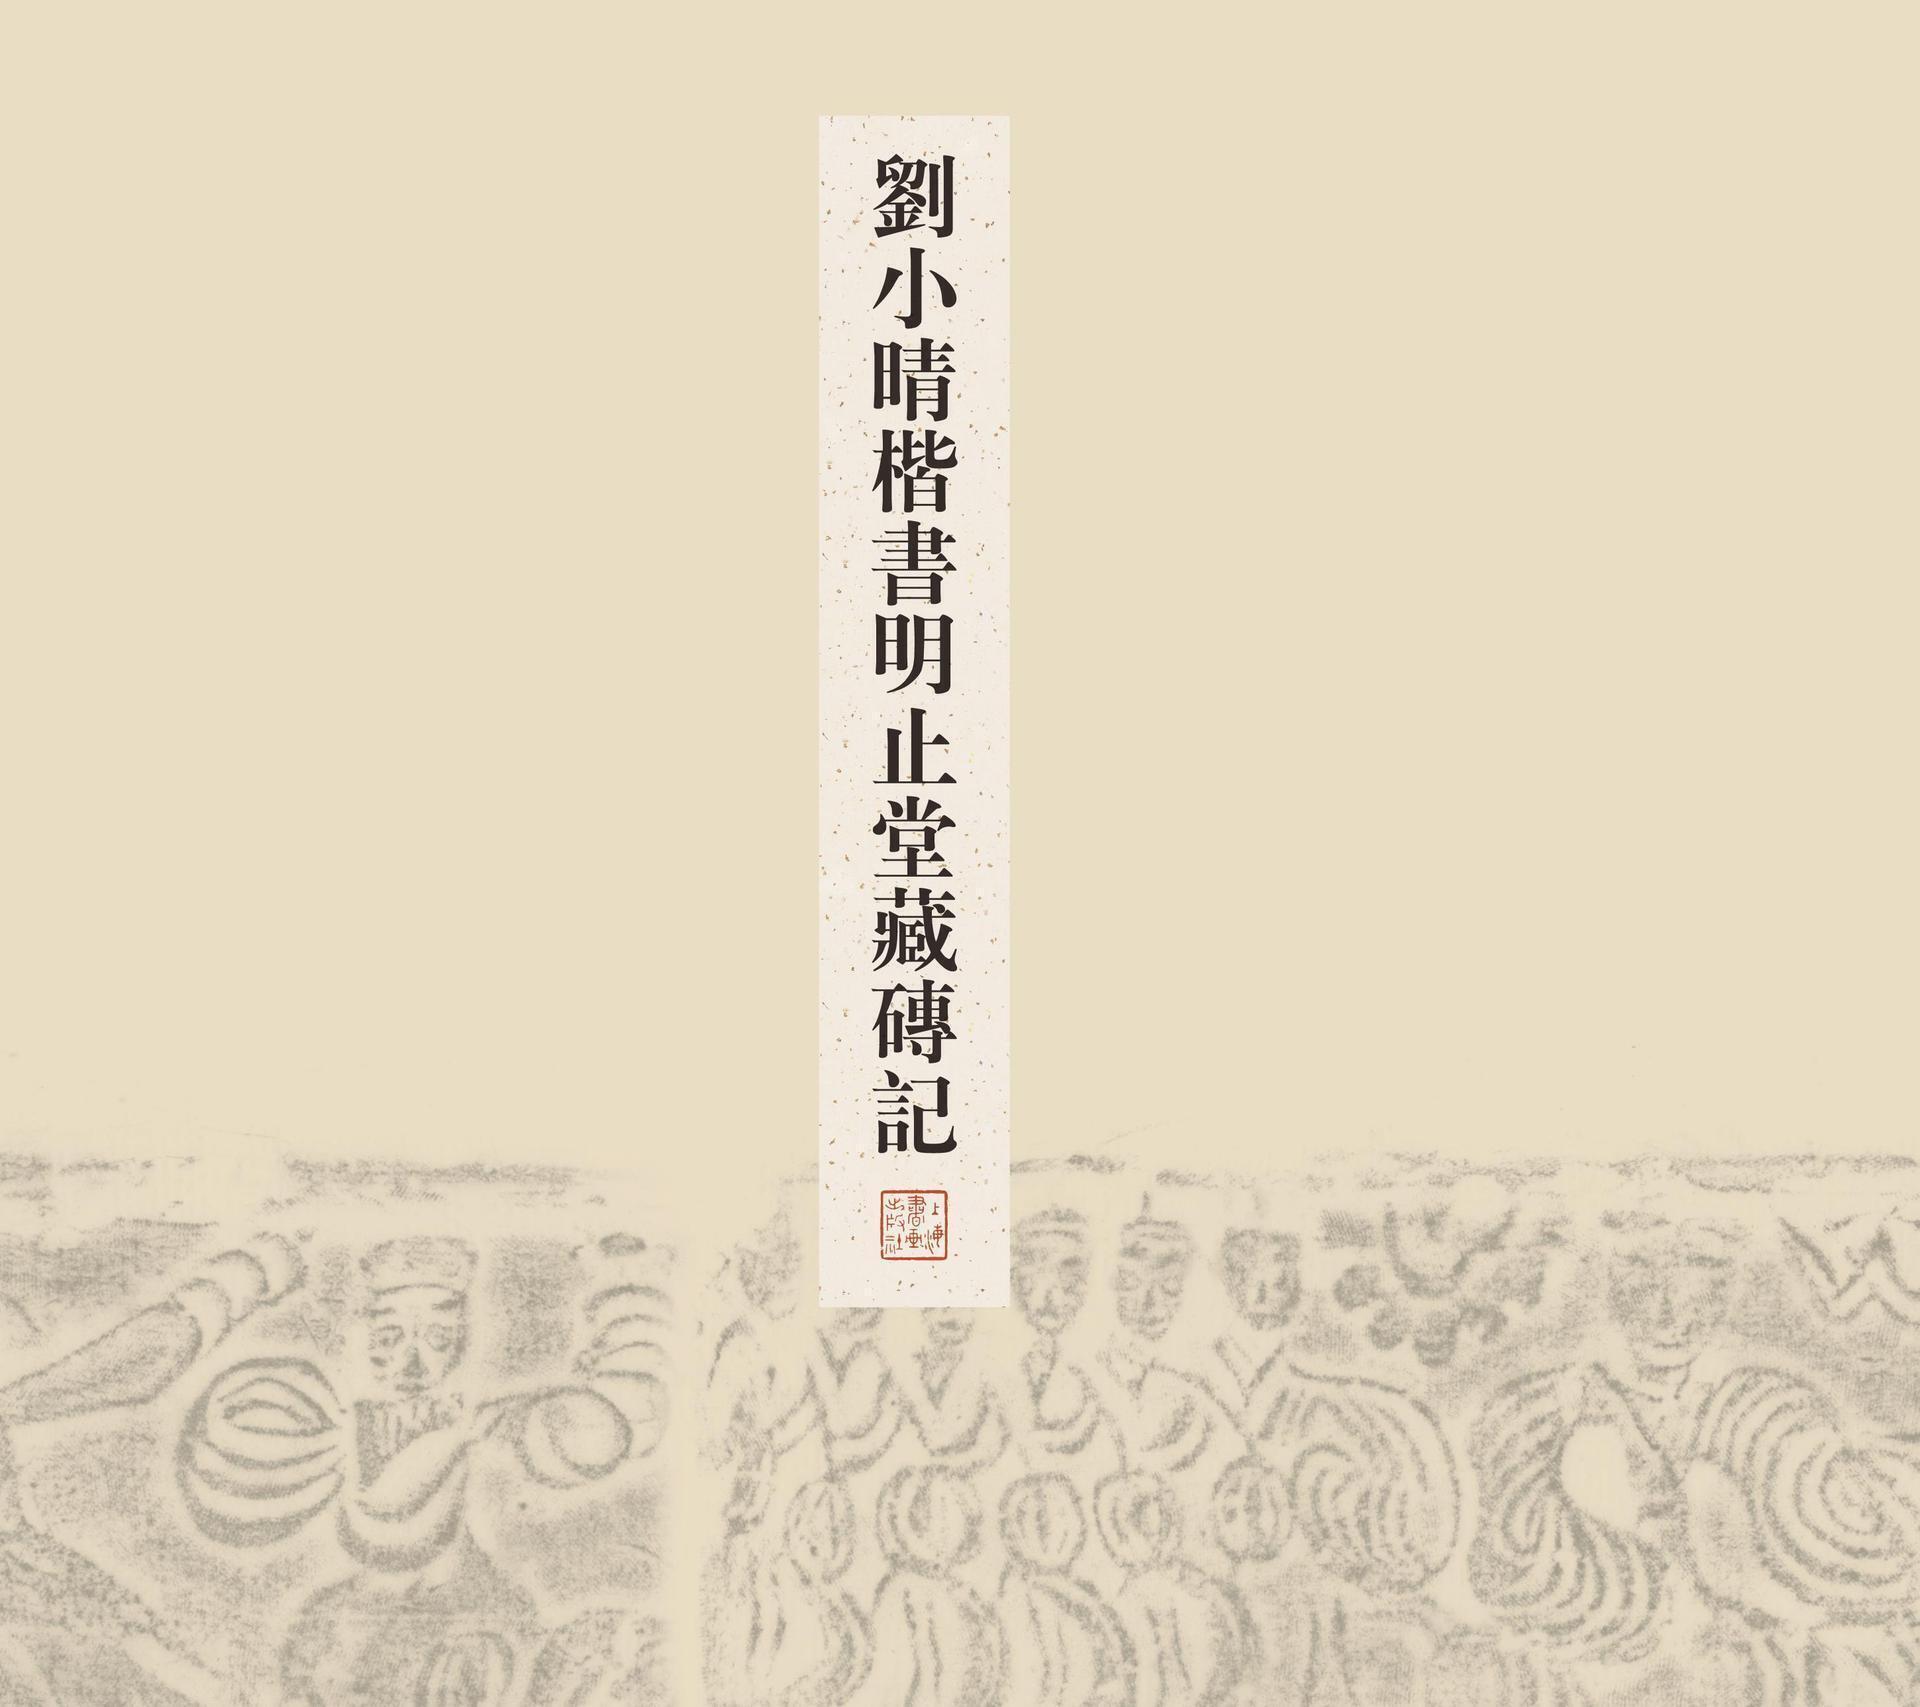 劉小晴楷書明止堂藏磚記
上海
書画
出版社